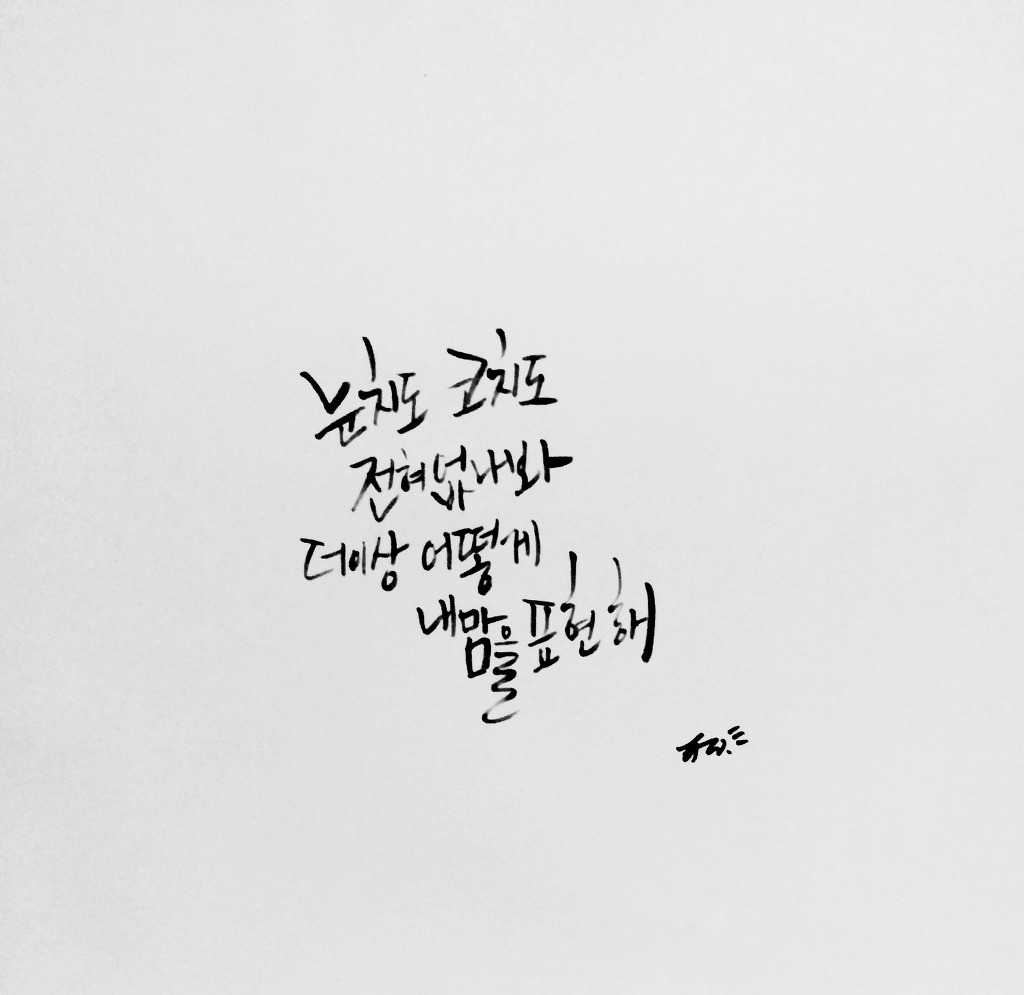 눈치도 코치도
전혀 없나봐
더이상 어떻게
내맘을 표현해